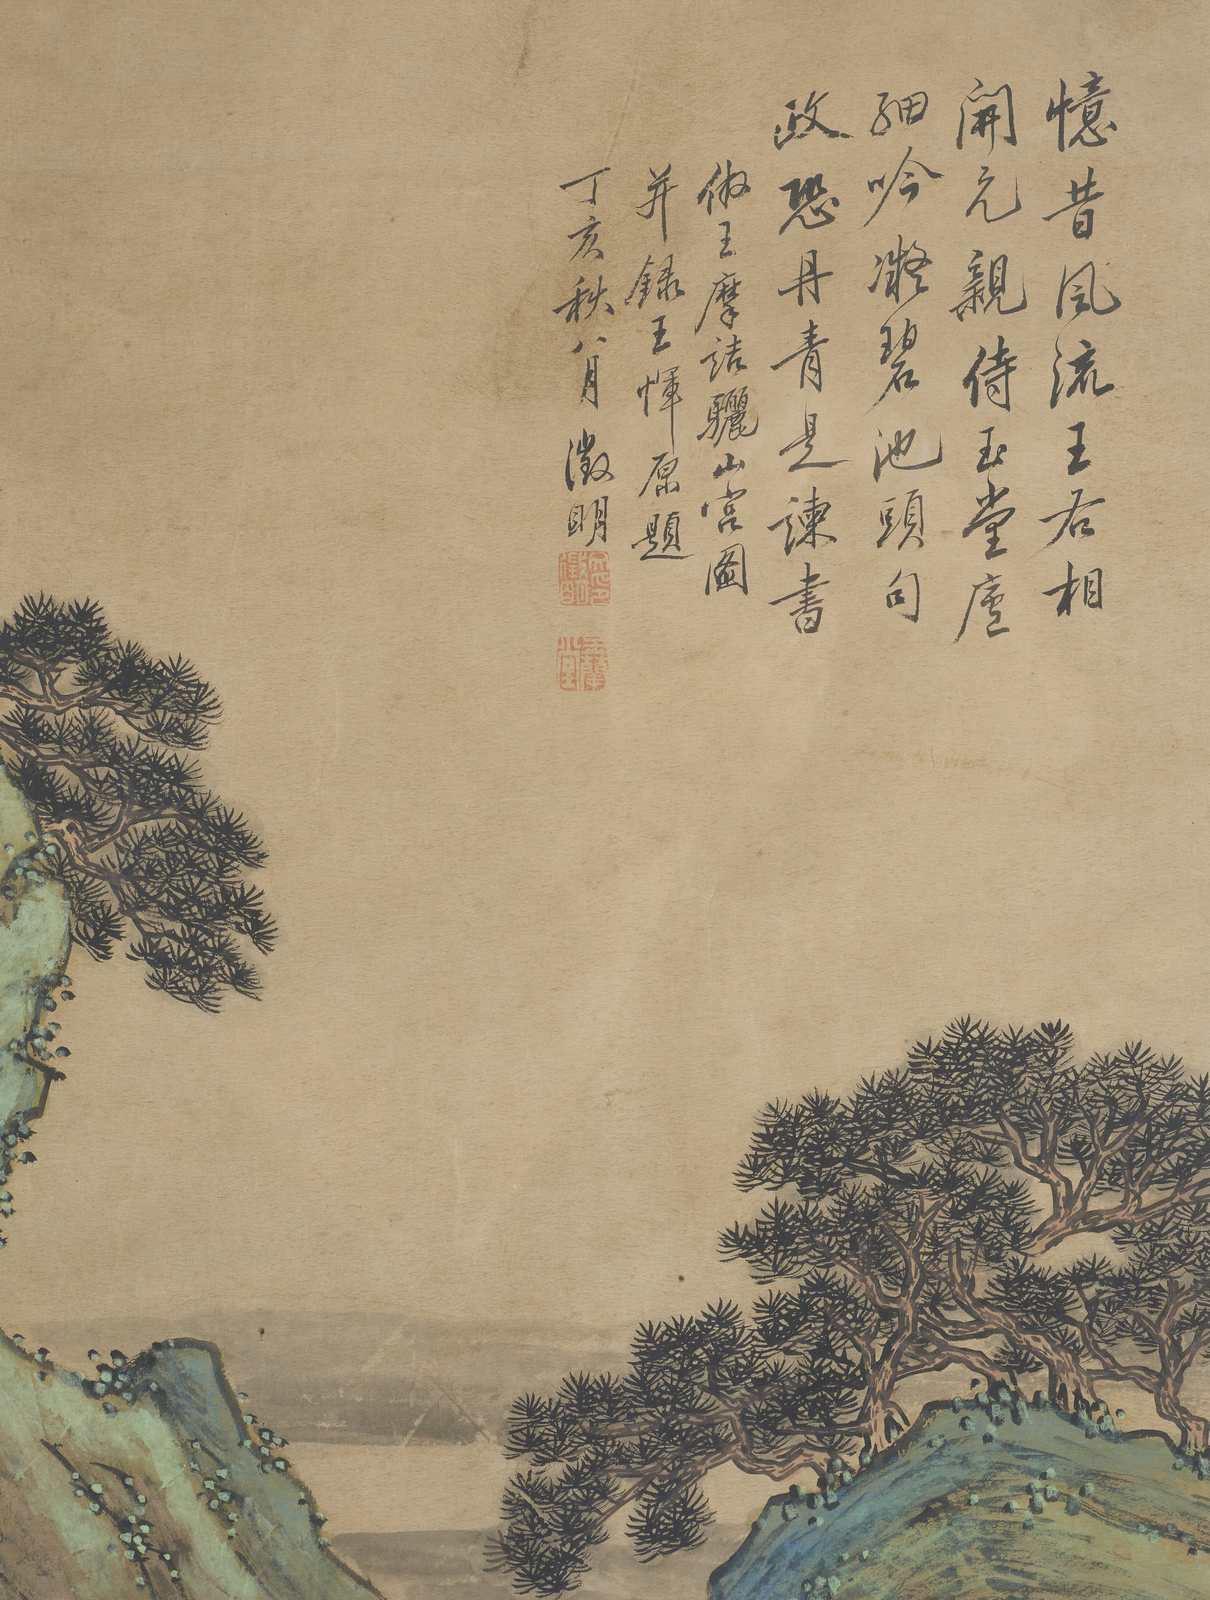 憶昔風流王右相
開元親侍玉堂廬
細吟凝碧池頭句
政恐丹青是諫書
倣王摩詰驪山宮圖
并錄王惲原題
丁亥秋八月徵明
徵明